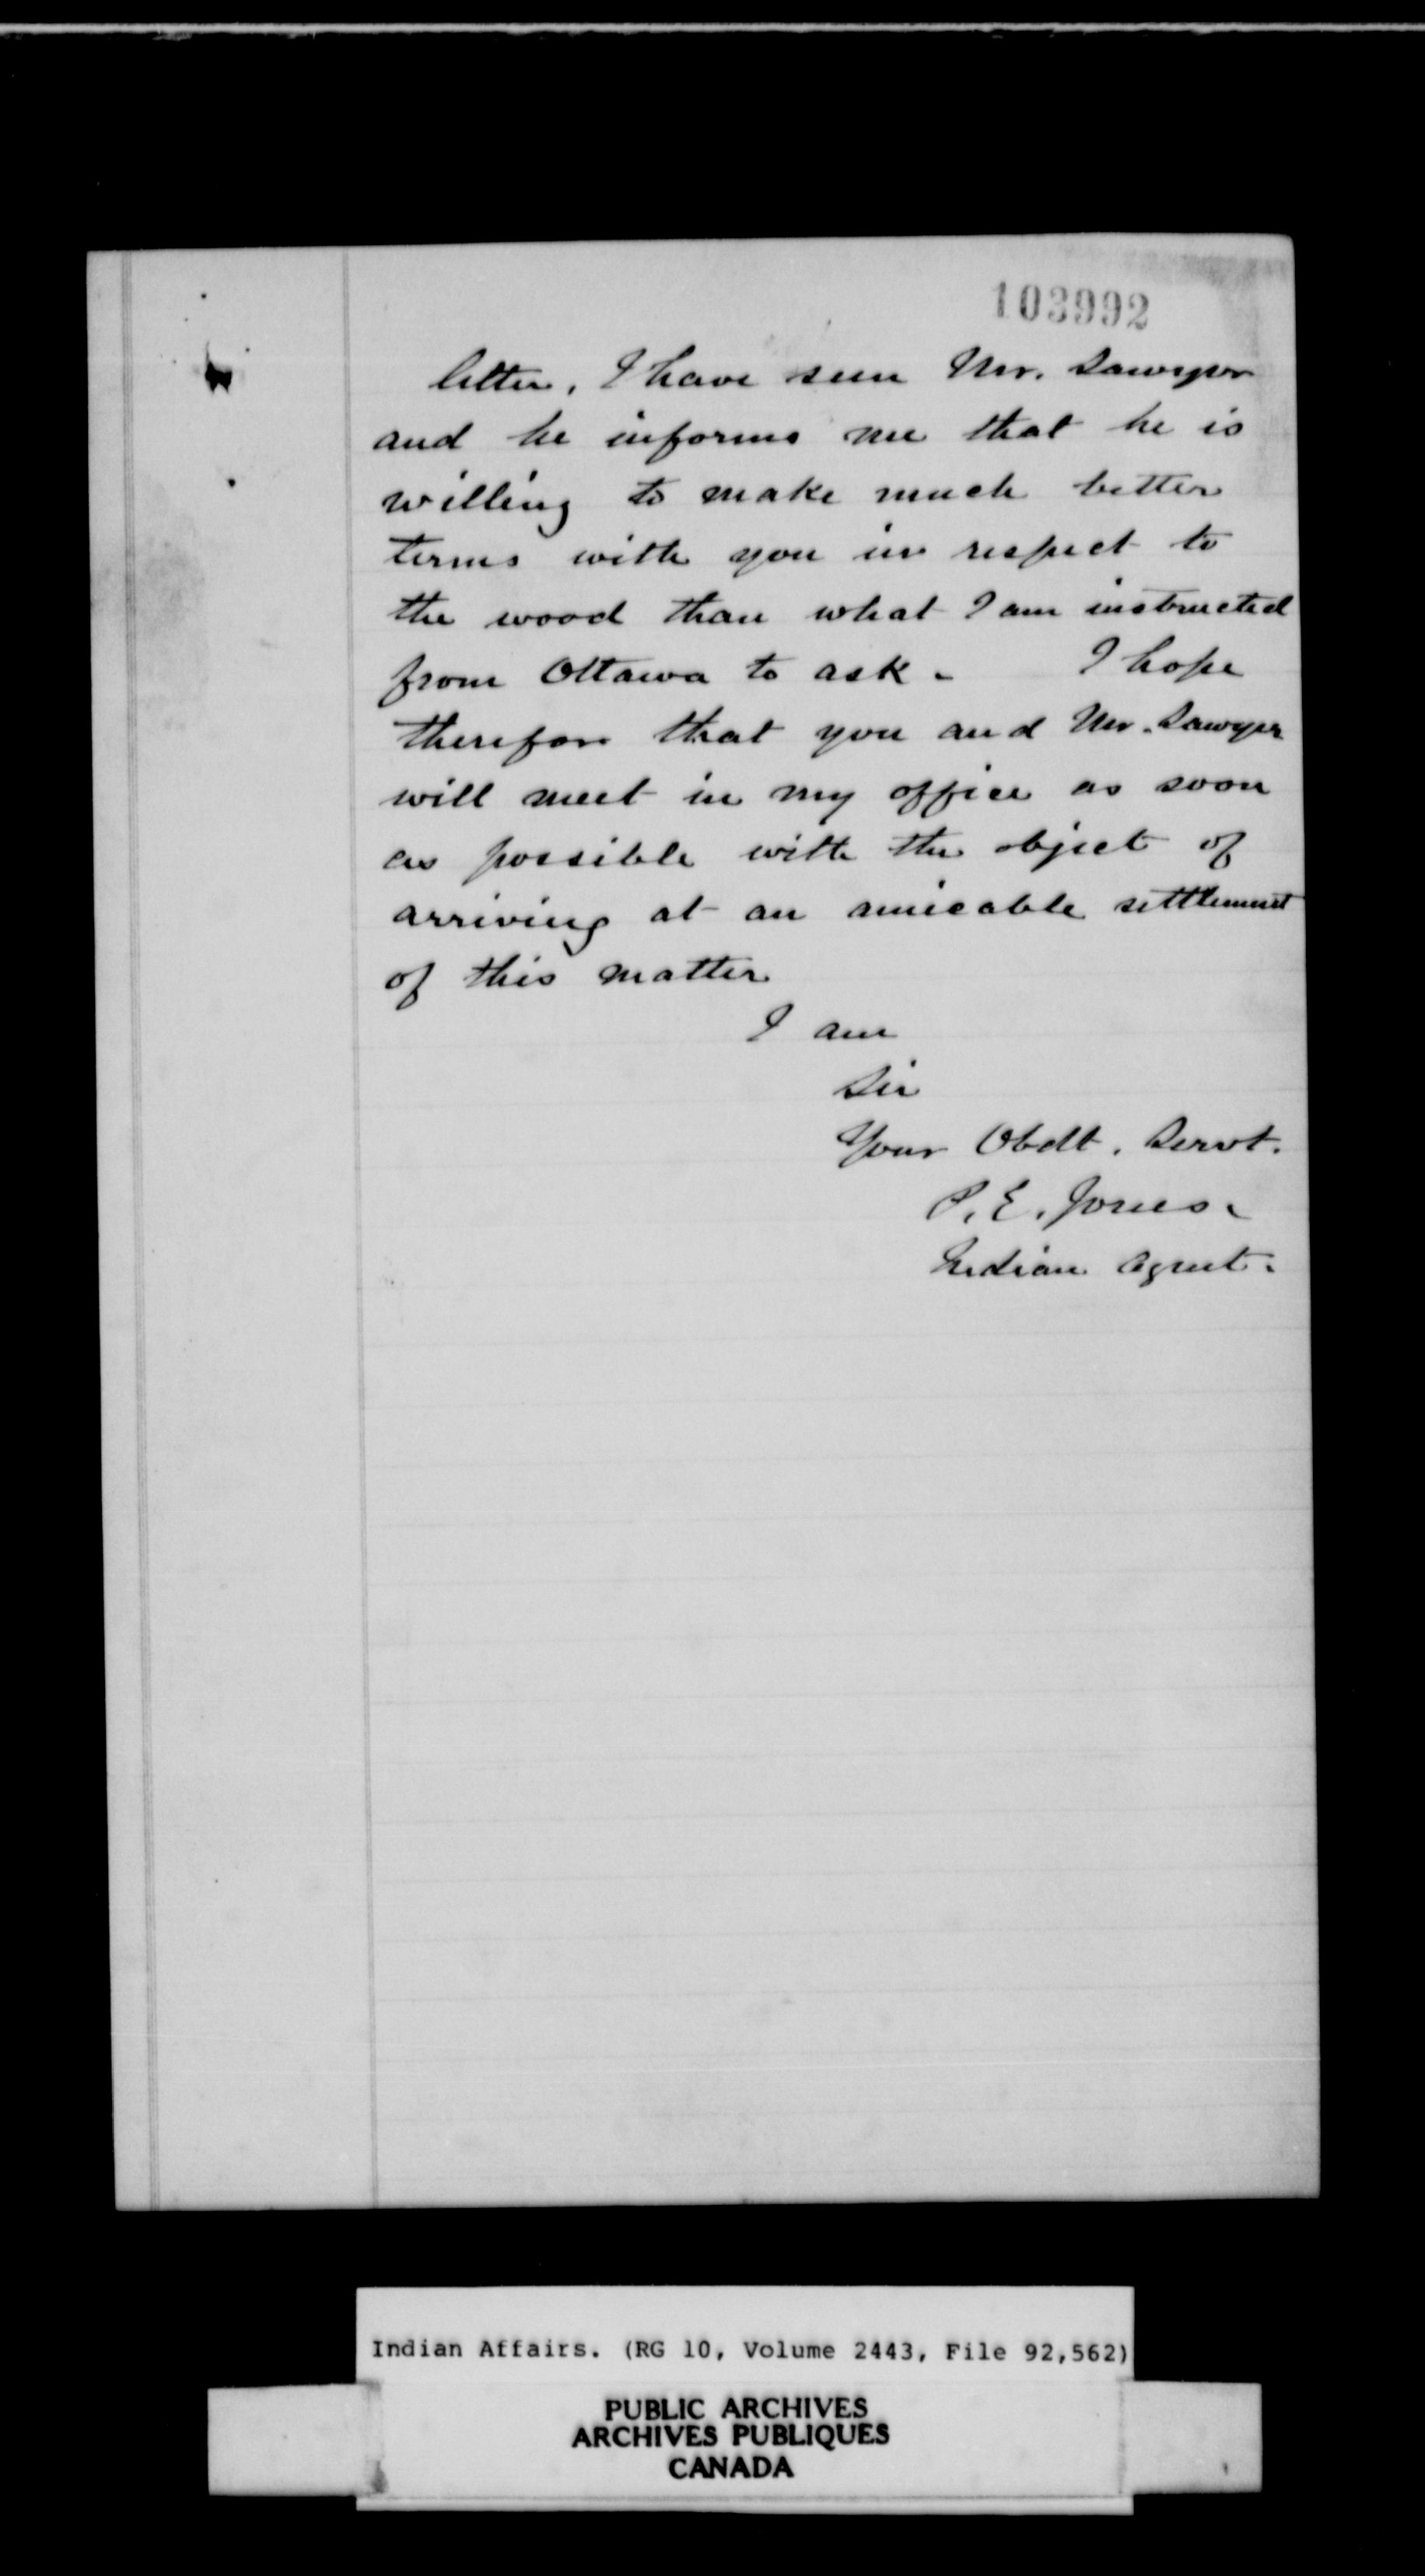 103992
letter, I have seen Mr. Sawyer
and he informs me that he is
willing to make much better
terms with you in respect to
the wood than what I am instructed
from Ottawa to ask. I hope
therefore that you and Mr. Sawyer
will meet in my office as soon
as possible with the object of
arriving at an amicable settlement
of this matter
I am
Sir
Your Obdt. Servt.
P. E. Jones.
Indian Agent.
Indian Affairs. (RG 10, Volume 2443, File 92,562)
PUBLIC ARCHIVES
ARCHIVES PUBLIQUES
CANADA